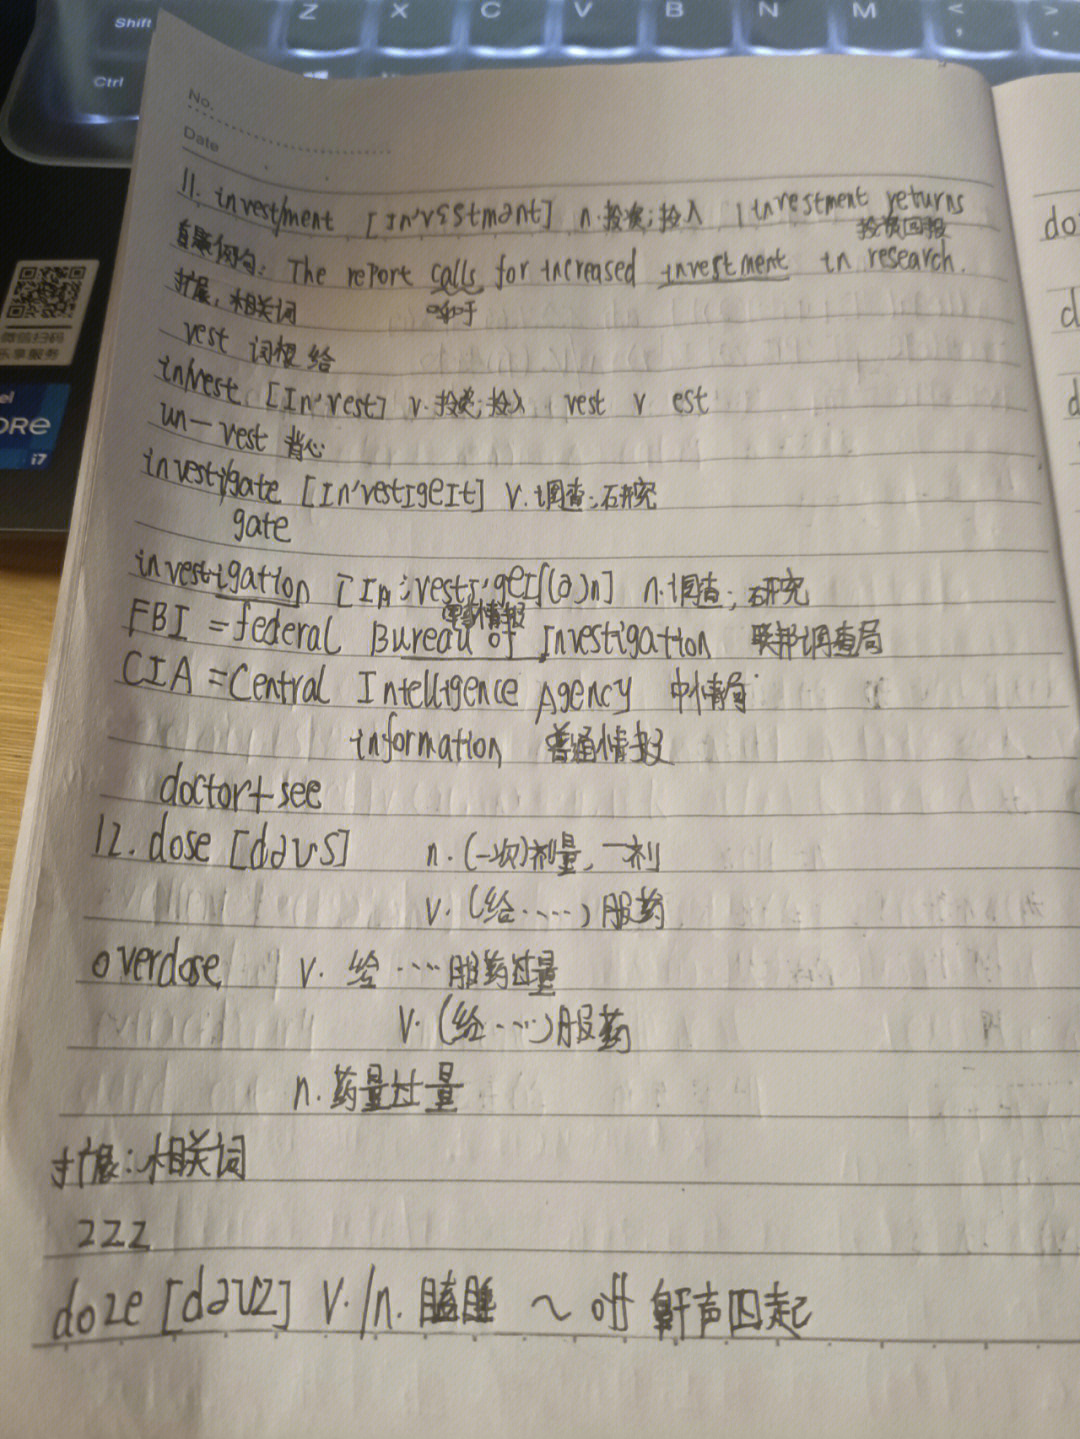 Shift Z X C V B N M < >
Ctrl
No.
Date
11. invest/ment [In'vestmənt] n.投资;投入 investment returns
投资回报
真题例句: The report calls for increased investment in research.
呼吁
扩展:相关词
vest 词根 给
in/vest [In'vest] v.投资;投入 vest v est
un—vest 背心
investi/gate [In'vestIgeIt] v.调查;研究
gate
investigation [In;vestI'geIʃ(ə)n] n.调查;研究
FBI =federal Bureau of Investigation 联邦调查局
CIA =Central Intelligence Agency 中情局
information 普通情报
doctor+see
12. dose [dəʊs] n.(一次)剂量,一剂
v.(给……)服药
overdose v. 给……服药过量
v.(给……)服药
n.药量过量
扩展:相关词
zzz
doze [dəʊz] v./n. 瞌睡 ~ off 鼾声四起
微信扫码
乐享服务
CORE
i7
do
d
d